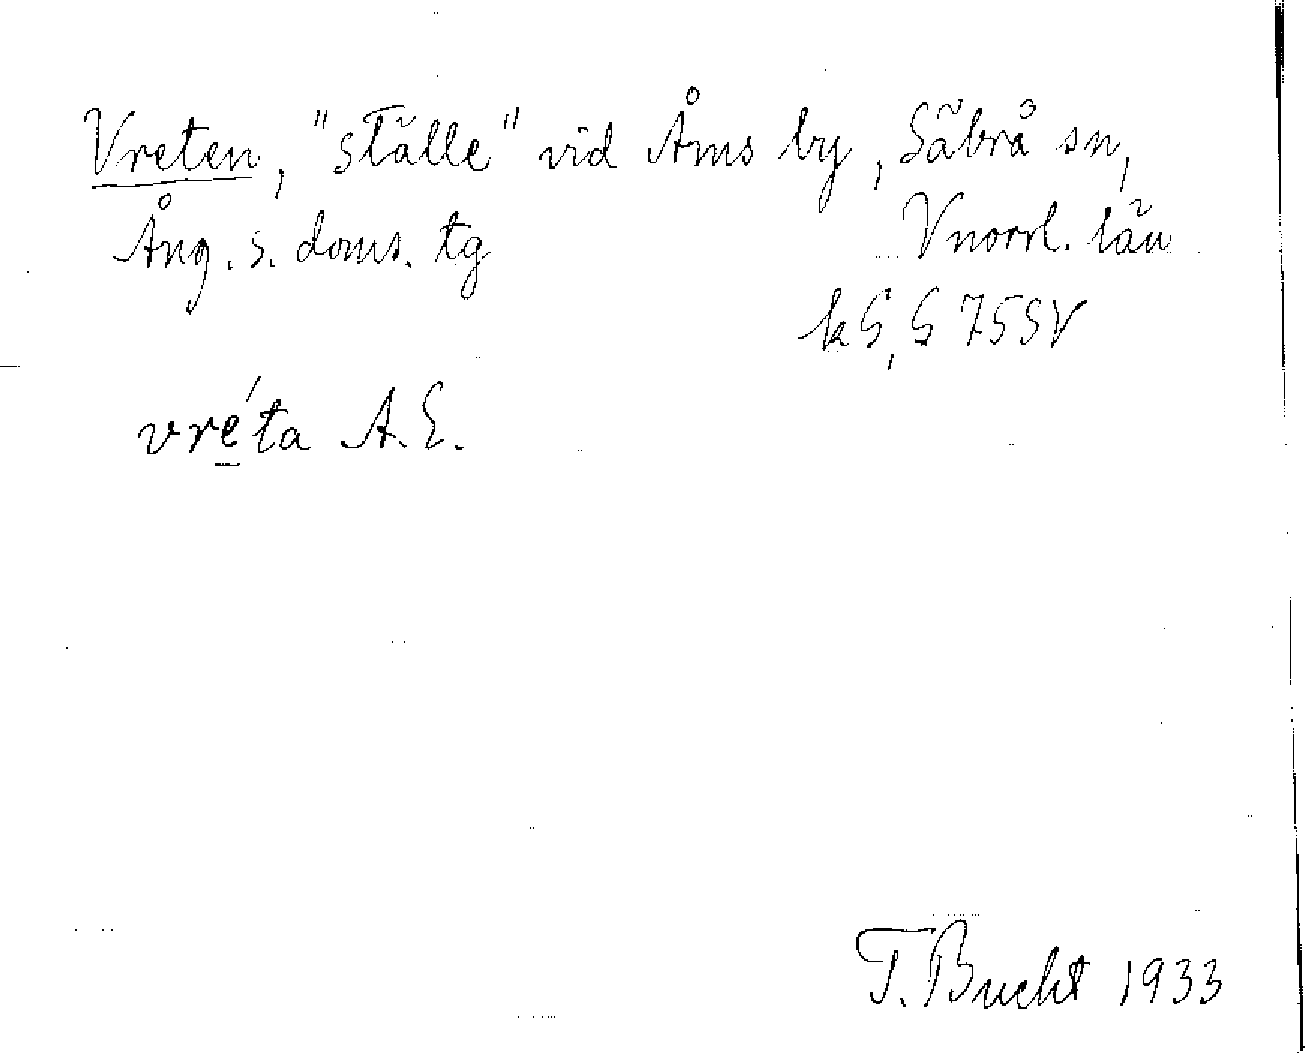 Vreten, "ställe" vid Åms by, Säbrå sn,
Ång. s. doms. tg Vnorrl. län
kG, G 75SV
vre̲´ta A.E.
T. Bucht 1933